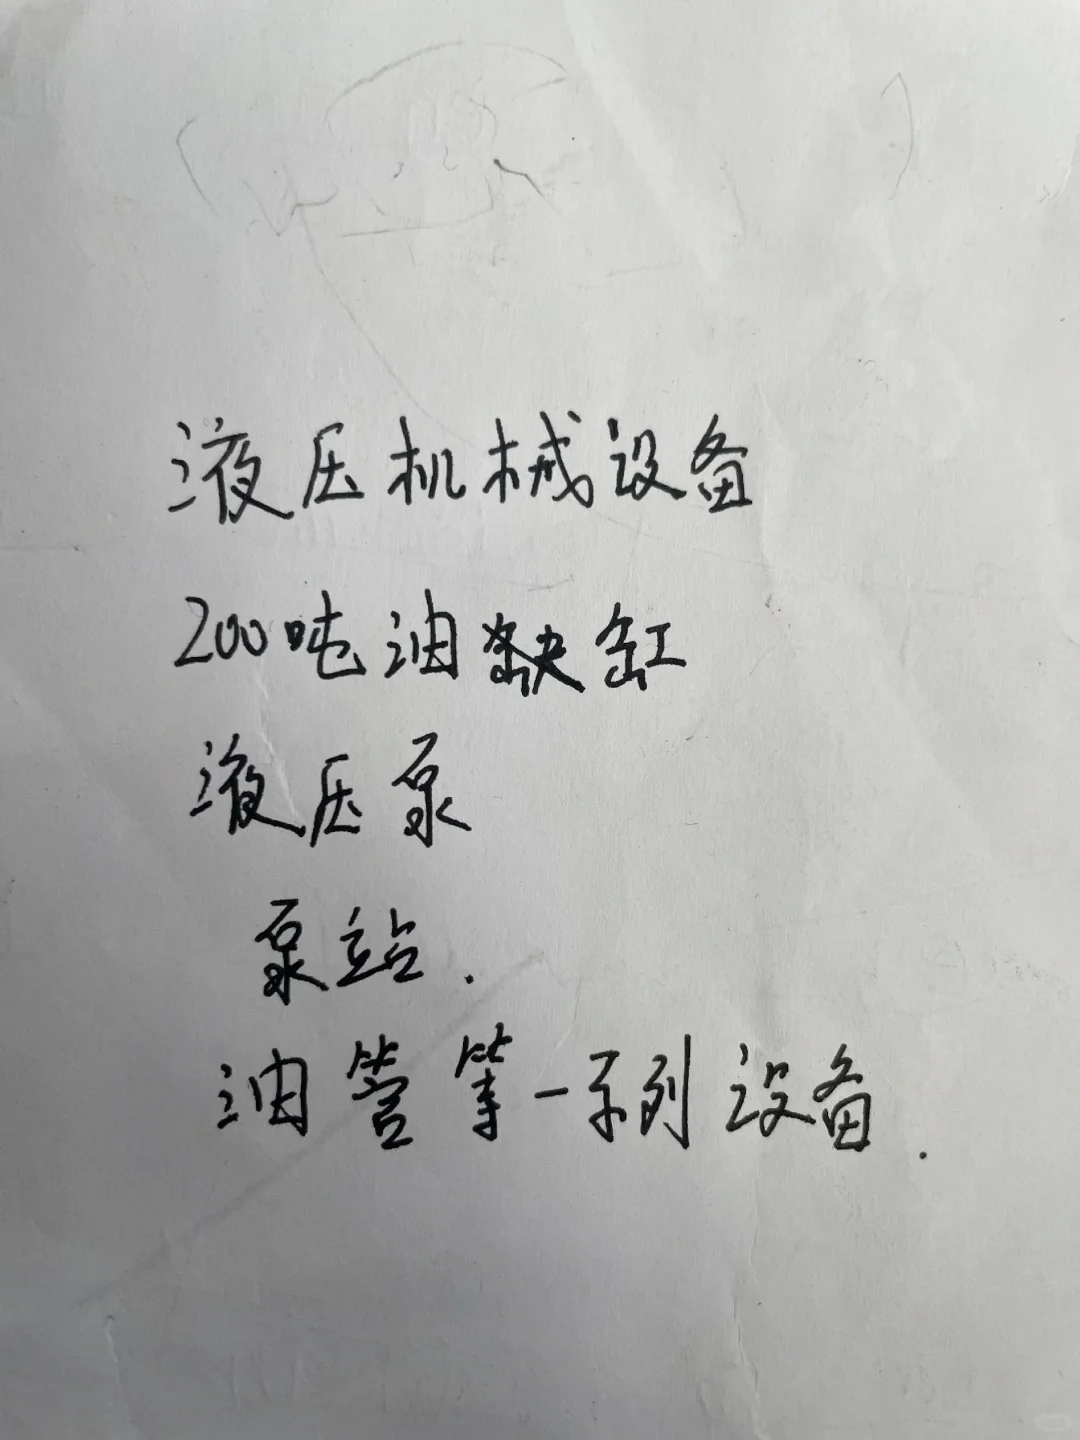 液压机械设备
200吨油缸
液压泵
泵站.
油管等一系列设备.